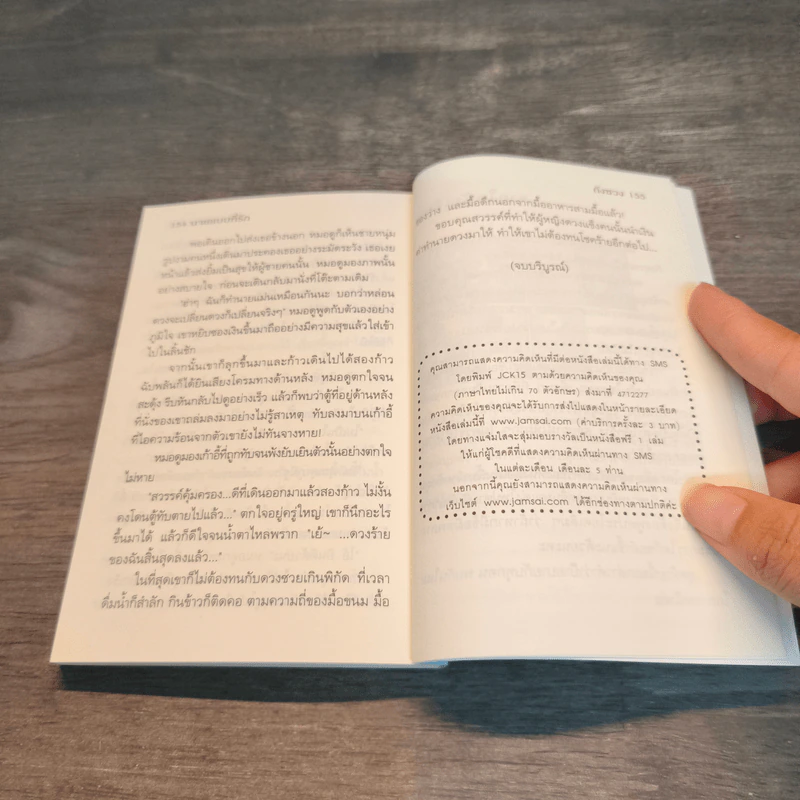 พอเดินออกไปส่งเธอข้างนอก หมอดูก็เห็นชายหนุ่ม
รูปงามคนหนึ่งเดินมาประคองเธออย่างระมัดระวัง เธอเงย
หน้าแล้วส่งยิ้มเป็นสุขให้ผู้ชายคนนั้น หมอดูมองภาพนั้น
อย่างสบายใจ ก่อนจะเดินกลับมานั่งที่โต๊ะตามเดิม
"ฮ่าๆ ฉันก็ทำนายแม่นเหมือนกันนะ บอกว่าหล่อน
ดวงจะเปลี่ยนดวงก็เปลี่ยนจริงๆ" หมอดูพูดกับตัวเองอย่าง
ภูมิใจ เขาหยิบซองเงินขึ้นมาถืออย่างมีความสุขแล้วใส่เข้า
ไปในลิ้นชัก
จากนั้นเขาก็ลุกขึ้นมาและก้าวเดินไปได้สองก้าว
ฉับพลันก็ได้ยินเสียงโครมทางด้านหลัง หมอดูตกใจจน
สะดุ้ง รีบหันกลับไปดูอย่างเร็ว แล้วก็พบว่าตู้ที่อยู่ด้านหลัง
ที่นั่งของเขาถล่มลงมาอย่างไม่รู้สาเหตุ ทับลงมาบนเก้าอี้
ที่ไอความร้อนจากตัวเขายังไม่ทันจางหาย!
หมอดูมองเก้าอี้ที่ถูกทับจนพังยับเยินตัวนั้นอย่างตกใจ
ไม่หาย
"สวรรค์คุ้มครอง...ดีที่เดินออกมาแล้วสองก้าว ไม่งั้น
คงโดนตู้ทับตายไปแล้ว..." ตกใจอยู่ครู่ใหญ่ เขาก็นึกอะไร
ขึ้นมาได้ แล้วก็ดีใจจนน้ำตาไหลพราก "เย้~ ...ดวงร้าย
ของฉันสิ้นสุดลงแล้ว..."
ในที่สุดเขาก็ไม่ต้องทนกับดวงซวยเกินพิกัด ที่เวลา
ดื่มน้ำก็สำลัก กินข้าวก็ติดคอ ตามความถี่ของมื้อขนม มื้อ
กิ่งซวง 155
และมื้อดึกนอกจากมื้ออาหารสามมื้อแล้ว!
ขอบคุณสวรรค์ที่ทำให้ผู้หญิงดวงแข็งคนนั้นนำเงิน
ค่าทำนายดวงมาให้ ทำให้เขาไม่ต้องทนโชคร้ายอีกต่อไป...
(จบบริบูรณ์)
คุณสามารถแสดงความคิดเห็นที่มีต่อหนังสือเล่มนี้ได้ทาง SMS
โดยพิมพ์ JCK15 ตามด้วยความคิดเห็นของคุณ
(ภาษาไทยไม่เกิน 70 ตัวอักษร) ส่งมาที่ 4712277
ความคิดเห็นของคุณจะได้รับการส่งไปแสดงในหน้ารายละเอียด
หนังสือเล่มนี้ที่ www.jamsai.com (ค่าบริการครั้งละ 3 บาท)
โดยทางแจ่มใสจะสุ่มมอบรางวัลเป็นหนังสือฟรี 1 เล่ม
ให้แก่ผู้โชคดีที่แสดงความคิดเห็นผ่านทาง SMS
ในแต่ละเดือน เดือนละ 5 ท่าน
นอกจากนี้คุณยังสามารถแสดงความคิดเห็นผ่านทาง
เว็บไซต์ www.jamsai.com ได้อีกช่องทางตามปกติค่ะ